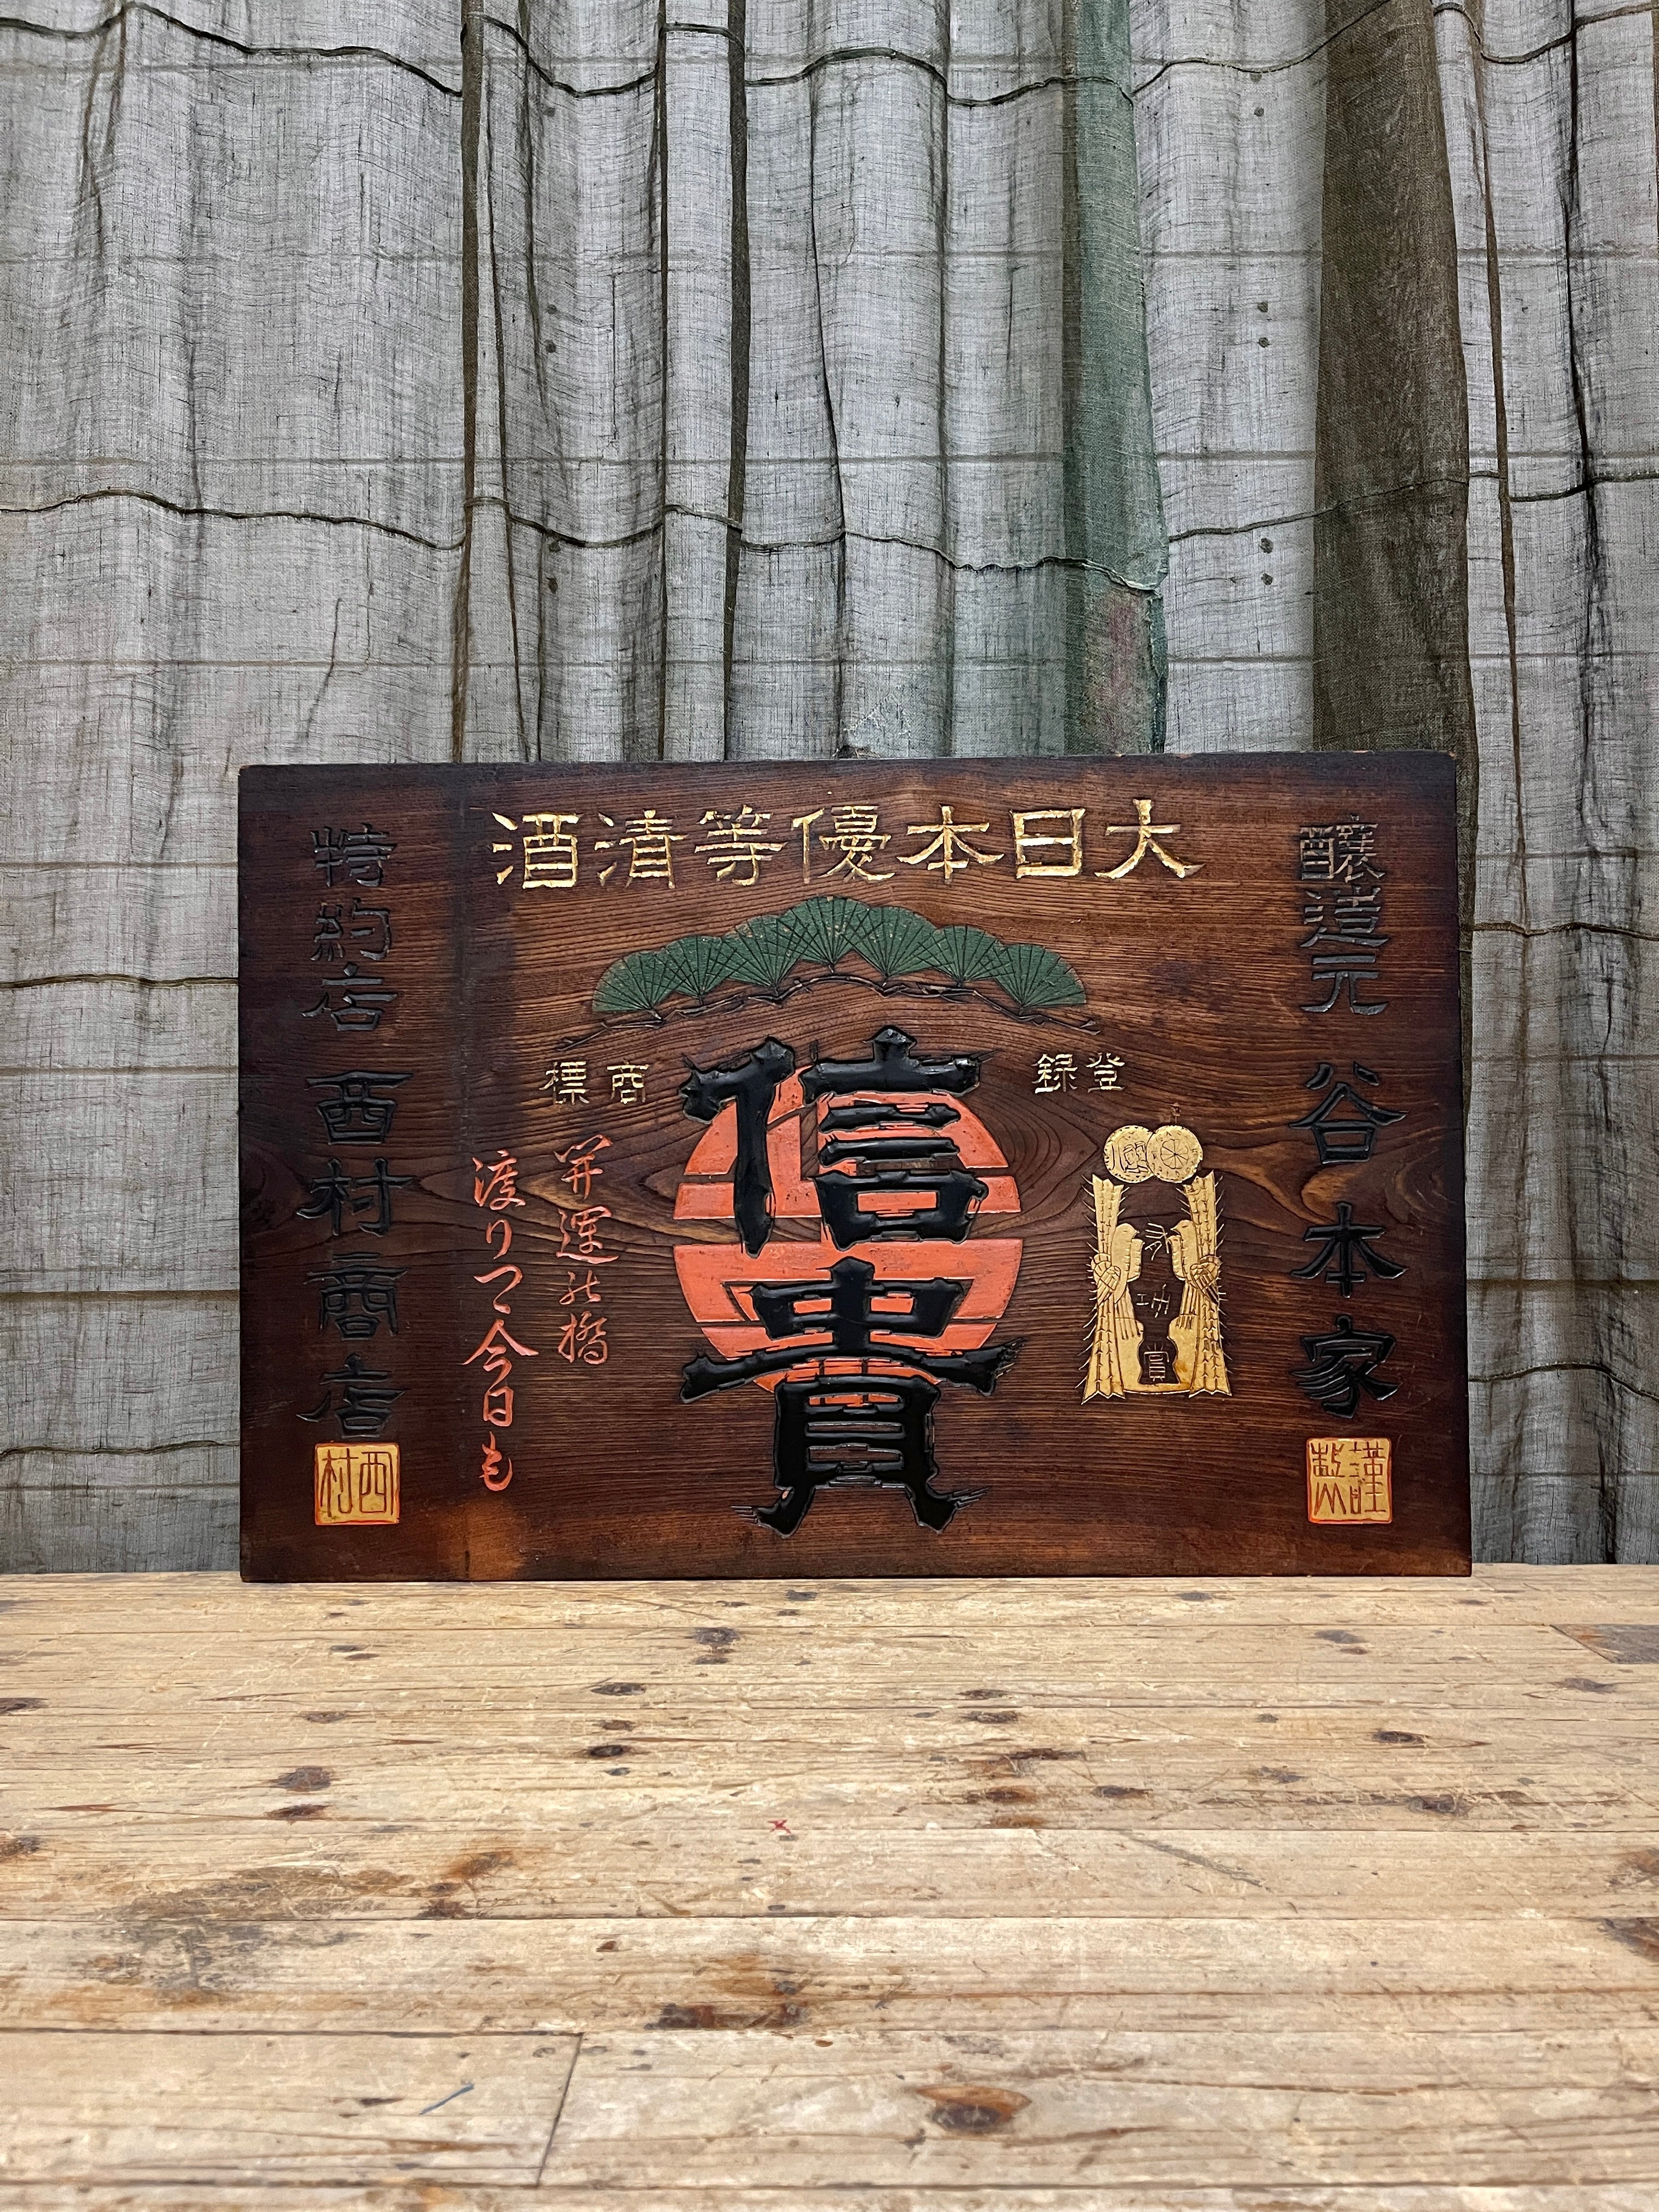 大日本優等清酒
醸造元 谷本家
謹製
登録
商標
信貴
有功賞
開運の橋
渡りつゝ今日も
特約店 西村商店
西村